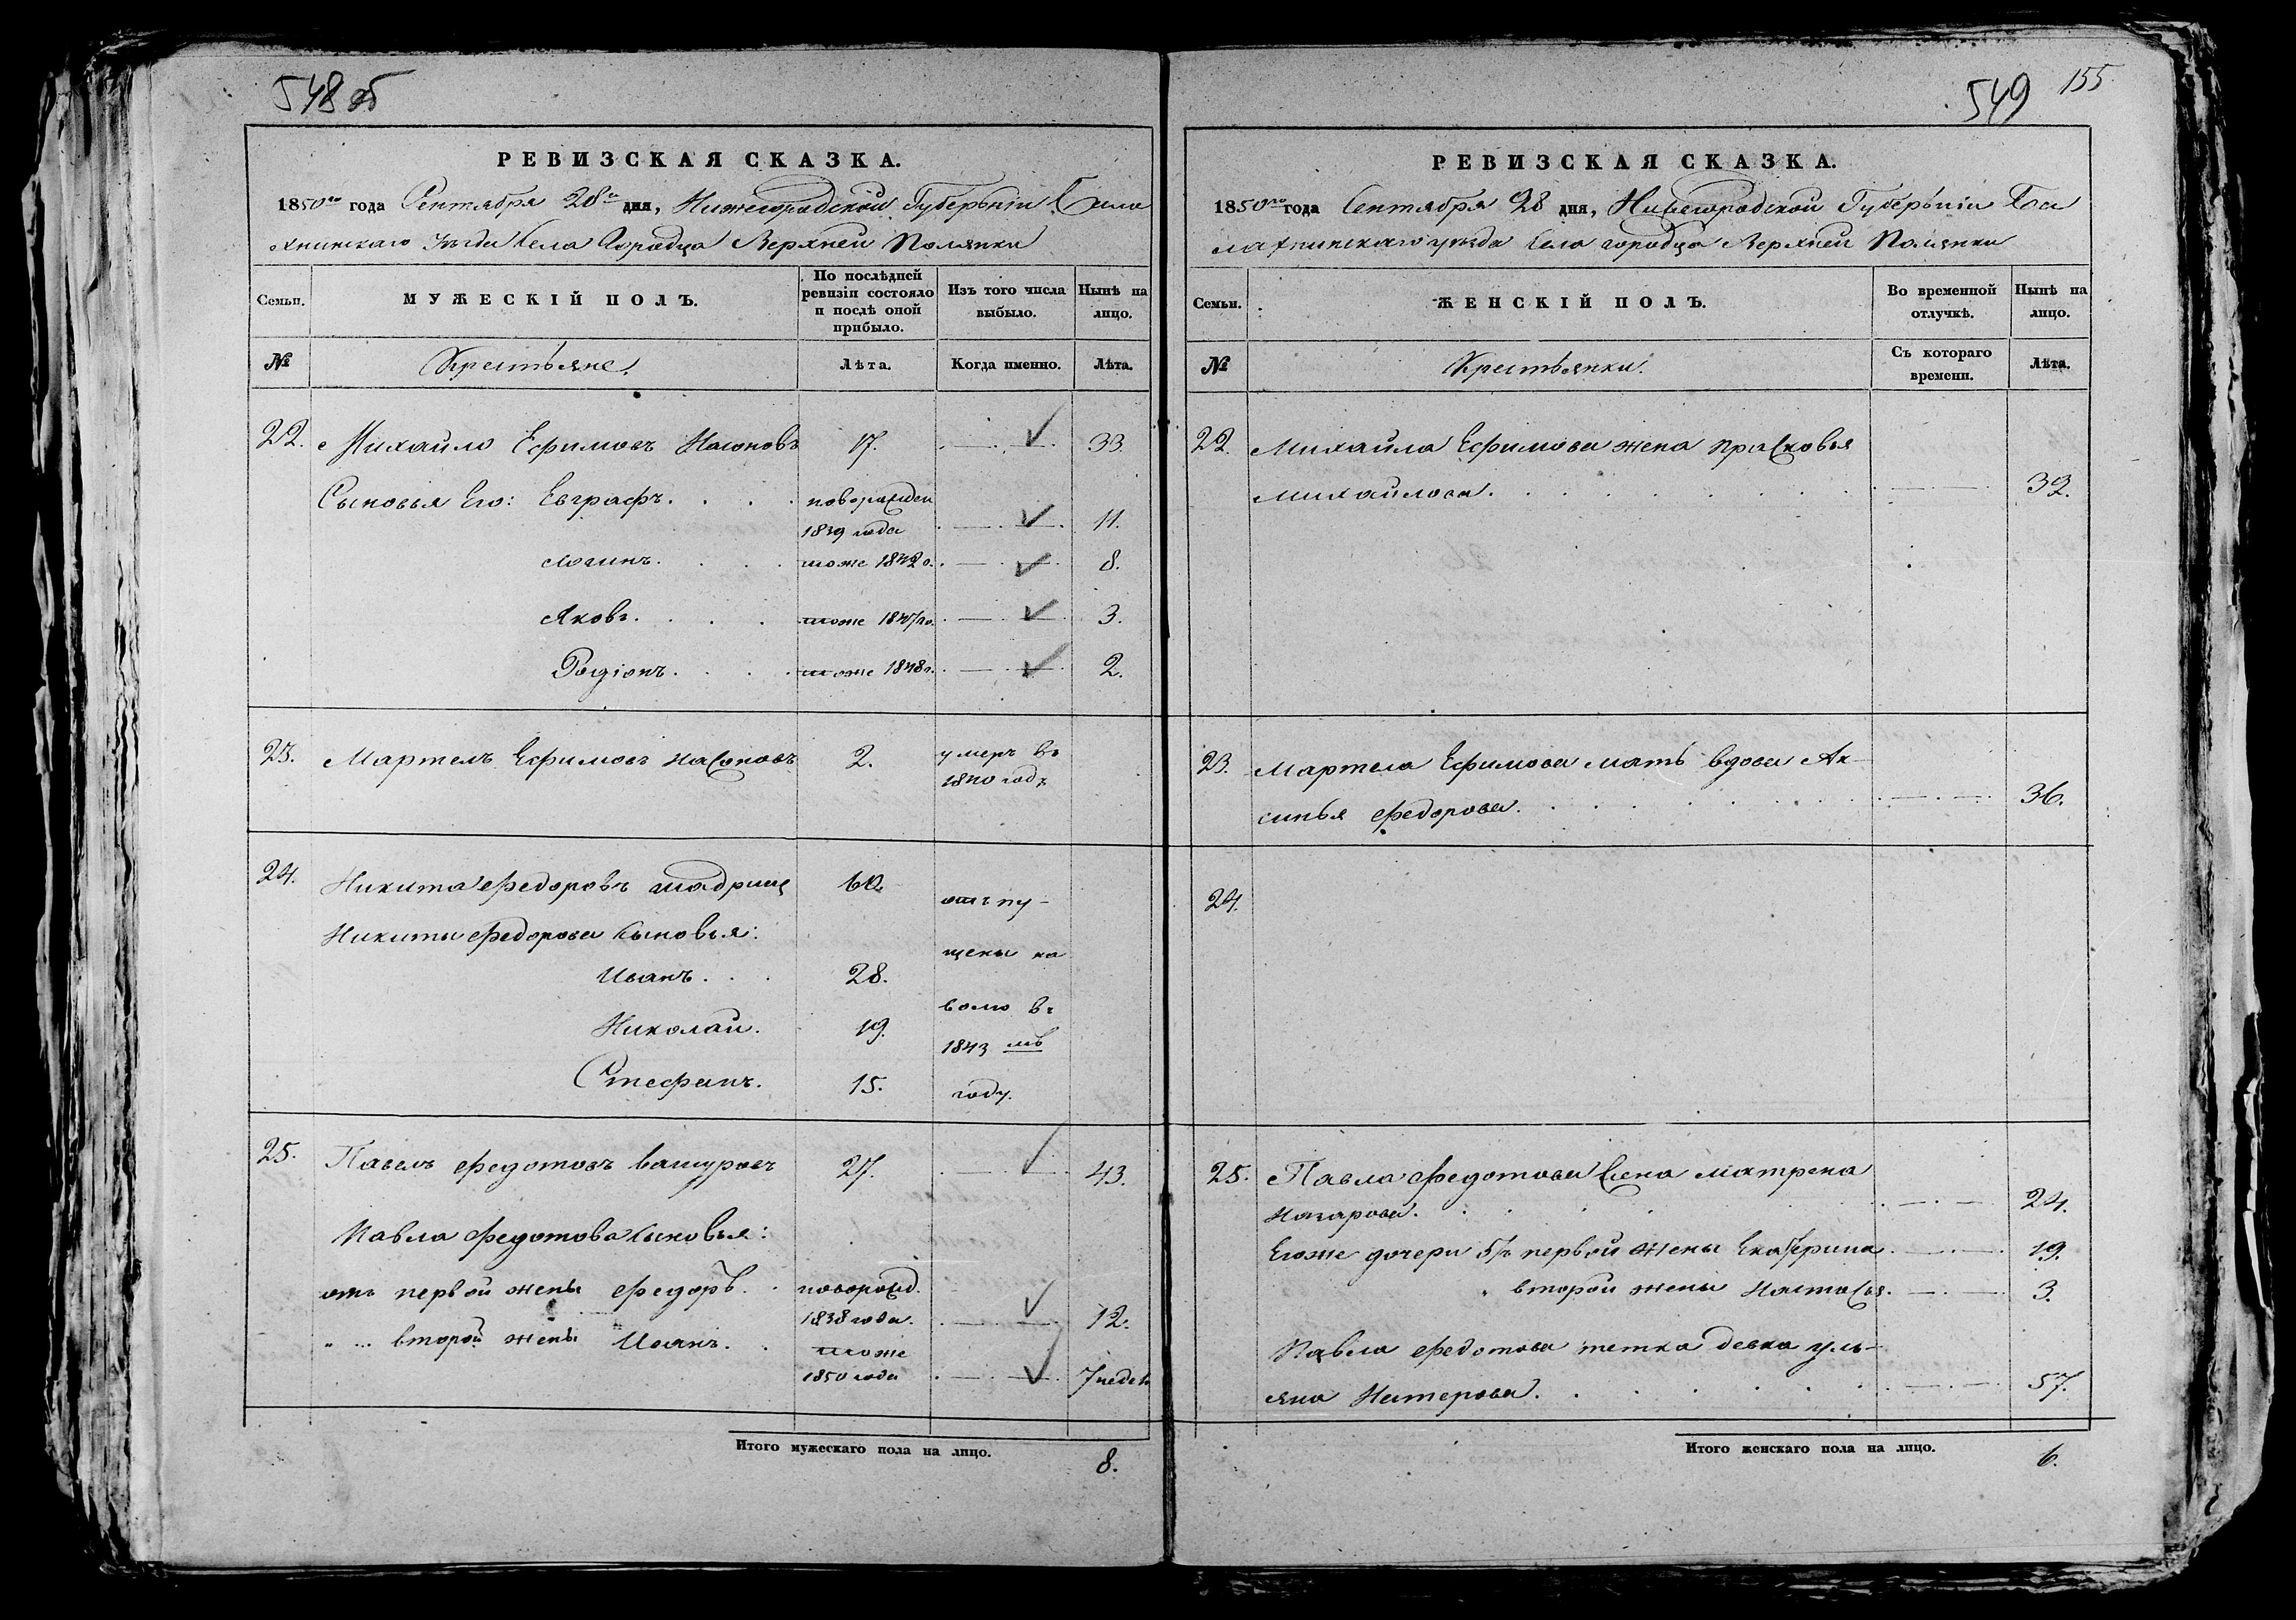 548 об
РЕВИЗСКАЯ СКАЗКА.
1850го года Сентября 28го дня, Нижегородской Губерніи Бала
хнинскаго уѣзда Села Городца Верхней Полянки
Семьи.
МУЖЕСКІЙ ПОЛЪ.
По послѣдней
ревизіи состояло
и послѣ оной
прибыло.
Изъ того числа
выбыло.
Нынѣ на
лицо.
№
Крестьяне.
Лѣта.
Когда именно.
Лѣта.
22. Михайло Ефимовъ Насоновъ 17. 33.
Сыновья Его: Евграфъ. новорожден
1839 года 11.
Логинъ. тоже 1842 г. 8.
Яковъ. тоже 1847 го. 3.
Родіонъ. тоже 1848 г. 2.
23. Мартелъ Ефимовъ Насоновъ 2. умеръ въ
1840 годъ
24. Никита Федоровъ 60. отъпу-
Никиты Федорова сыновья: щены на
Иванъ. 28.
волю въ
Николай. 19.
1843 мъ
Стефанъ. 15. году.
25. Павелъ Федотовъ Вашуровъ 27. 43.
Павла Федотова сыновья:
отъ первой жены Федоръ. новорожд.
1838 года. 12.
" второй жены Иванъ. тоже
1850 года 7 недел
Итого мужескаго пола на лицо. 8.
549 155
РЕВИЗСКАЯ СКАЗКА.
1850го года Сентября 28 дня, Нижегородской Губерніи Ба
лахнинскаго уѣзда Села городца Верхней Полянки
Семьи.
ЖЕНСКІЙ ПОЛЪ.
Во временной
отлучкѣ.
Нынѣ на
лицо.
№
Крестьянки.
Съ котораго
времени.
Лѣта.
22. Михайла Ефимова жена Прасковья
Михайлова. 32.
23. Мартела Ефимова мать вдова Ак-
синья Федорова. 36.
24.
25. Павла Федотова жена Матрена
Назарова. 24.
Егоже дочери отъ первой жены Екатерина 19.
" второй жены Настасья. 3.
Павла Федотова тетка девка Уль-
яна Нестерова. 57.
Итого женскаго пола на лицо. 6.